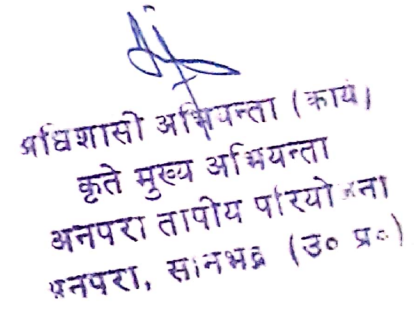 अधिशासी अभियन्ता (कार्य)
कृते मुख्य अभियन्ता
अनपरा तापीय परियोजना
अनपरा, सोनभद्र (उ० प्र०)